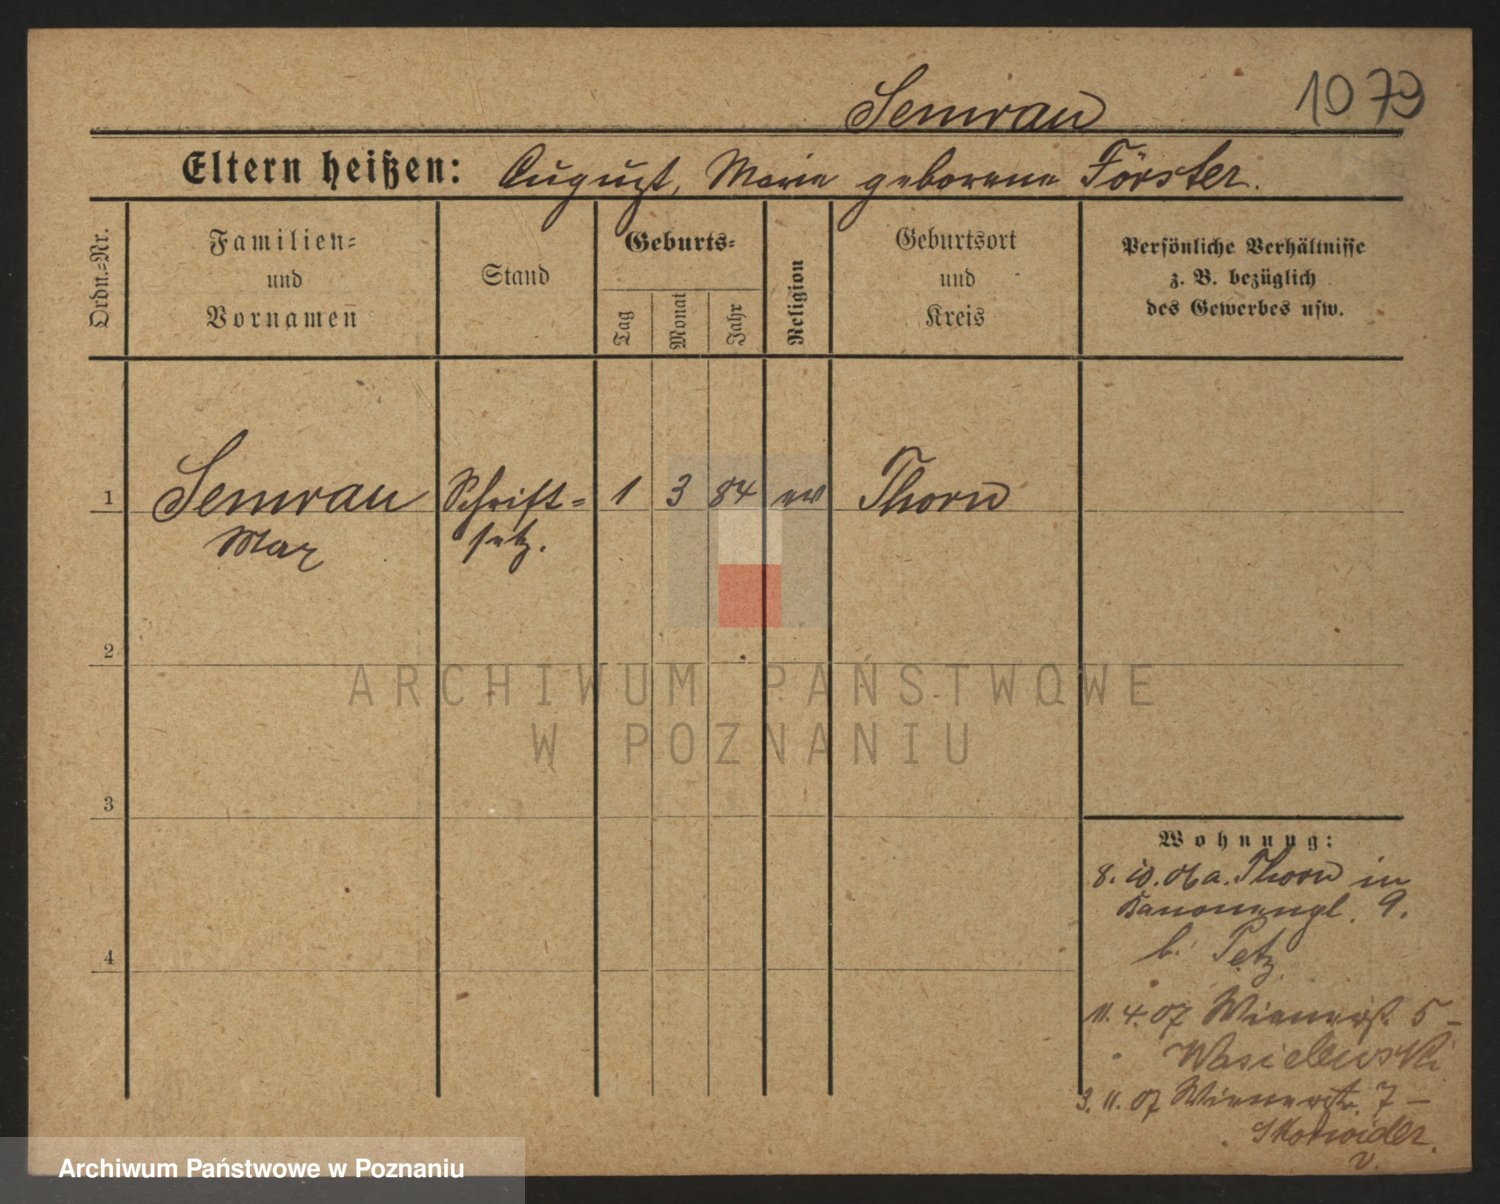 Semrau
1079
Eltern heißen: August, Marie geborene Förster.
Ordn.-Nr.
Familien-
und
Vornamen
Stand
Geburts-
Tag
Monat
Jahr
Religion
Geburtsort
und
Kreis
Persönliche Verhältnisse
z. B. bezüglich
des Gewerbes usw.
1 Semrau Schrift- 1 3 84 ev Thorn
Max setz.
2
ARCHIWUM PAŃSTWOWE
W POZNANIU
3
Wohnung:
8. 10. 06 a. Thorn in
Kanonengl. 9.
b. Petz
4
11. 4. 07 Wienerst. 5 -
Wasielewski
3. 11. 07 Wienerstr. 7 -
v.
Archiwum Państwowe w Poznaniu